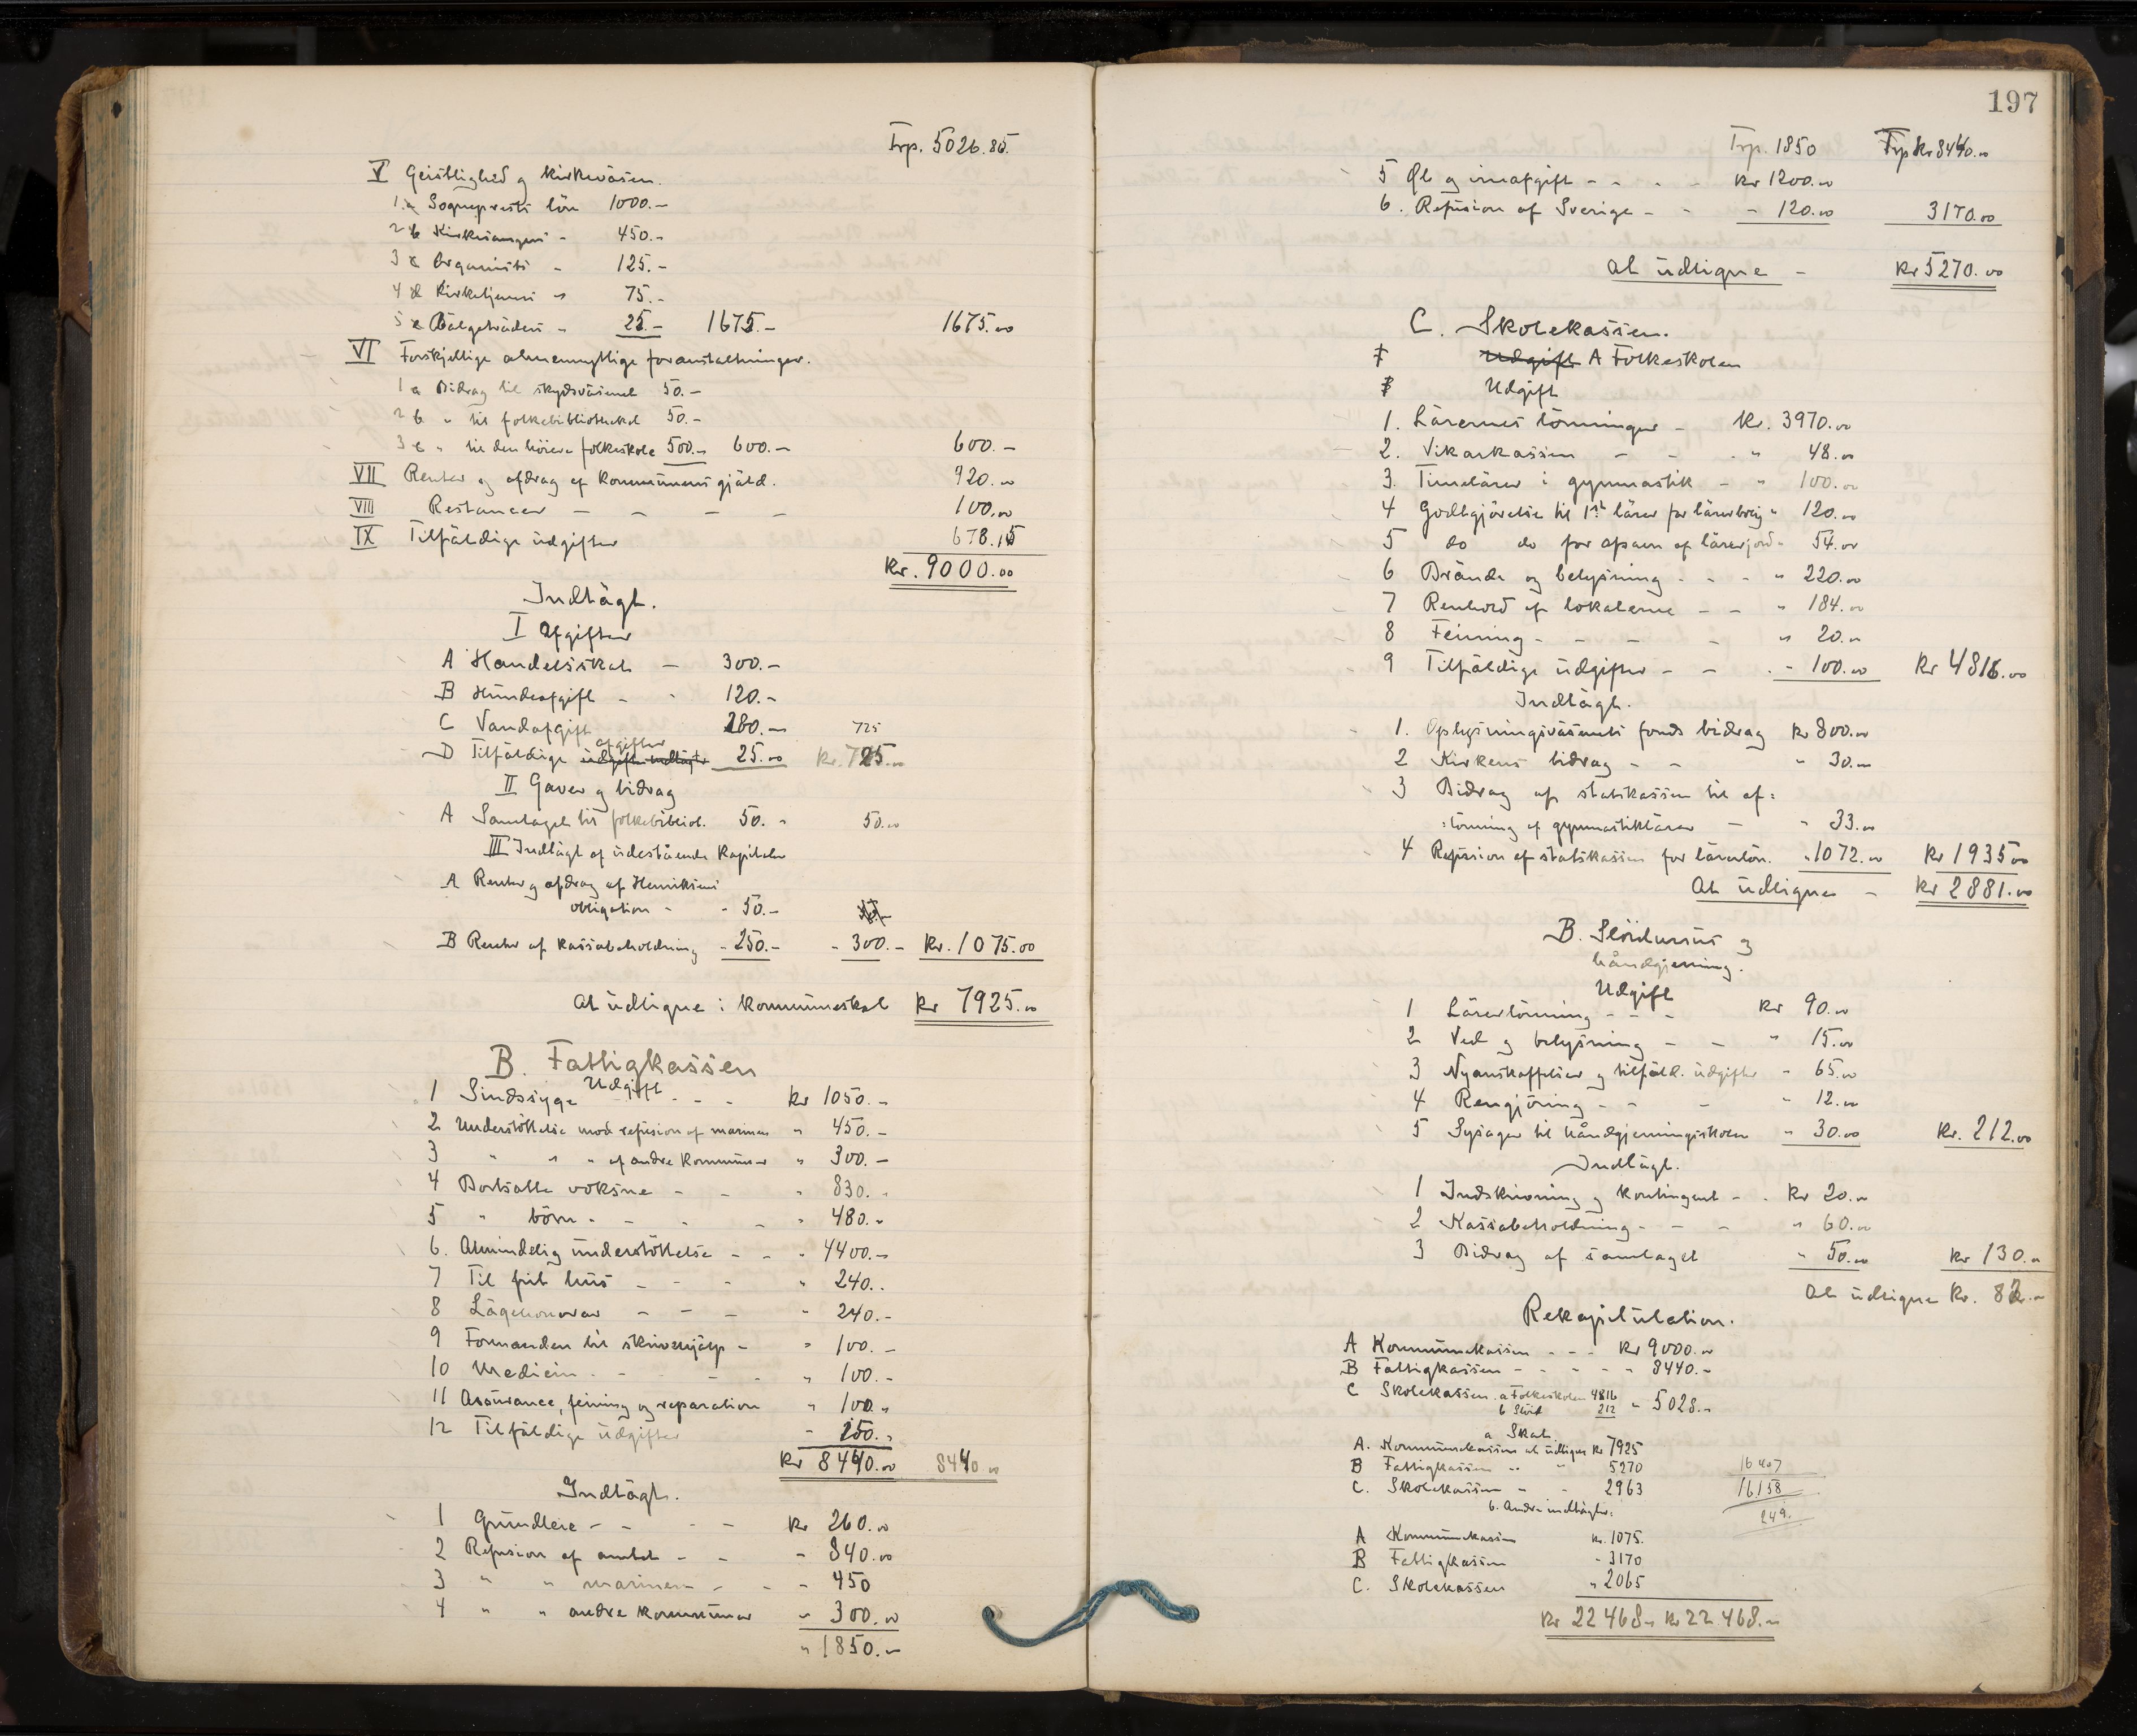 Trp. 5026.85.
V Geistlighed og kirkeväsen.
1 a Sogneprests lön 1000.–
2 b Kirkesangers – 450.–
3 c Organists – 125.–
4 d Kirketjeners " 75.–
5 e Bälgetråders – 25.– 1675.– 1675.00
VI Forskjellige almennyttige foranstaltninger.
1 a Bidrag til skydsväsenet 50.–
2 b " til folkebibliotheket 50.–
3 c " til den höiere folkeskole 500.– 600.– 600.–
VII Renter og afdrag af kommunens gjäld. 920.00
VIII Restancer – – – – 100.00
IX Tilfäldige udgifter 678.15
Kr. 9000.00
Indtägt.
I Afgifter
A Handelsskat – 300.–
B Hundeafgift – – 120.–
C Vandafgift 280.– 725
D Tilfäldige afgifter 25.00 Kr. 725.00
II Gaver og bidrag
A Samlaget til folkebibliot. 50.– 50.00
III Indtägt af udestående kapitaler
A Renter og afdrag af Henriksens
obligation – – 50.–
B Renter af kassabeholdning – 250.– – 300.– Kr. 1075.00
At udligne i kommuneskat Kr 7925.00
B. Fattigkassen
Udgift
1 Sindssyge – – – Kr 1050.–
2 Understöttelse mod refusion af marinen " 450.–
3 " " " af andre kommuner " 300.–
4 Bortsatte voksne – – " 830.–
5 " börn – – – – " 480.–
6. Almindelig understöttelse – – " 4400.–
7 Til frit hus – – – " 240.–
8 Lägehonorar – – – " 240.–
9 Formanden til skrivehjälp – " 100.–
10 Medicin – – – – – " 100.–
11 Assurance, feining og reparation " 100.–
12 Tilfäldige udgifter – 250.–
Kr 8440.00 8440.00
Indtägt.
1 Grundleie – – – – Kr 260.00
2 Refusion af amtet – – – 840.00
3 " " marinen – – – 450
4 " " andre kommuner – 300.00
" 1850.–
197
Trp. 1850 Trp Kr 8440.00
5 Öl og vinafgift – – – – Kr 1200.00
6. Refusion af Sverige – – – 120.00 3170.00
At udligne – Kr 5270.00
C. Skolekassen.
Udgift A Folkeskolen
Udgift
1. Lärernes lönninger – Kr. 3970.00
2. Vikarkassen – – – " 48.00
3. Timelärer i gymnastik – " 100.00
4 Godtgjörelse til 1st lärer for lärerbolig " 120.00
5 do do for afsavn af lärerjord – 54.00
6 Brände og belysning – – – " 220.00
7 Renhold af lokalerne – – " 184.00
8 Feining – – – – " 20.00
9 Tilfäldige udgifter – – – 100.00 Kr 4816.00
Indtägt.
1. Oplysningsväsenets fonds bidrag Kr 800.00
2 Kirkens bidrag – – " 30.00
3 Bidrag af statskassen til af:
:lönning af gymnastiklärer – " 33.00
4 Refusion af statskassen for lärerlön. " 1072.00 Kr 1935.00
At udligne – Kr 2881.00
B. Slöidkursus og
håndgjerning.
Udgift
1 Lärerlönning – – – Kr 90.00
2 Ved og belysning – – " 15.00
3 Nyanskaffelser og tilfäld. udgifter – 65.00
4 Rengjöring – – – " 12.00
5 Sysager til håndgjerningsskolen " 30.00 Kr. 212.00
Indtägt.
1 Indskrivning og kontingent – – Kr 20.00
2 Kassabeholdning – – – " 60.00
3 Bidrag af samlaget " 50.00 Kr 130.00
At udligne Kr. 82.–
Rekapitulation.
A Kommunekassen – – – Kr 9000.00
B Fattigkassen – – – – – " 8440.–
C Skolekassen. a Folkeskolen 4816
b Slöid 212 " 5028.–
a Skat.
A. Kommunekassen at udligne Kr 7925
B Fattigkassen " " 5270 16407
C. Skolekassen – – 2963 16158
b. Andre indtägter: 249.
A Kommunekassen Kr. 1075.
B Fattigkassen – 3170
C. Skolekassen " 2065
Kr 22468.– Kr 22468.–